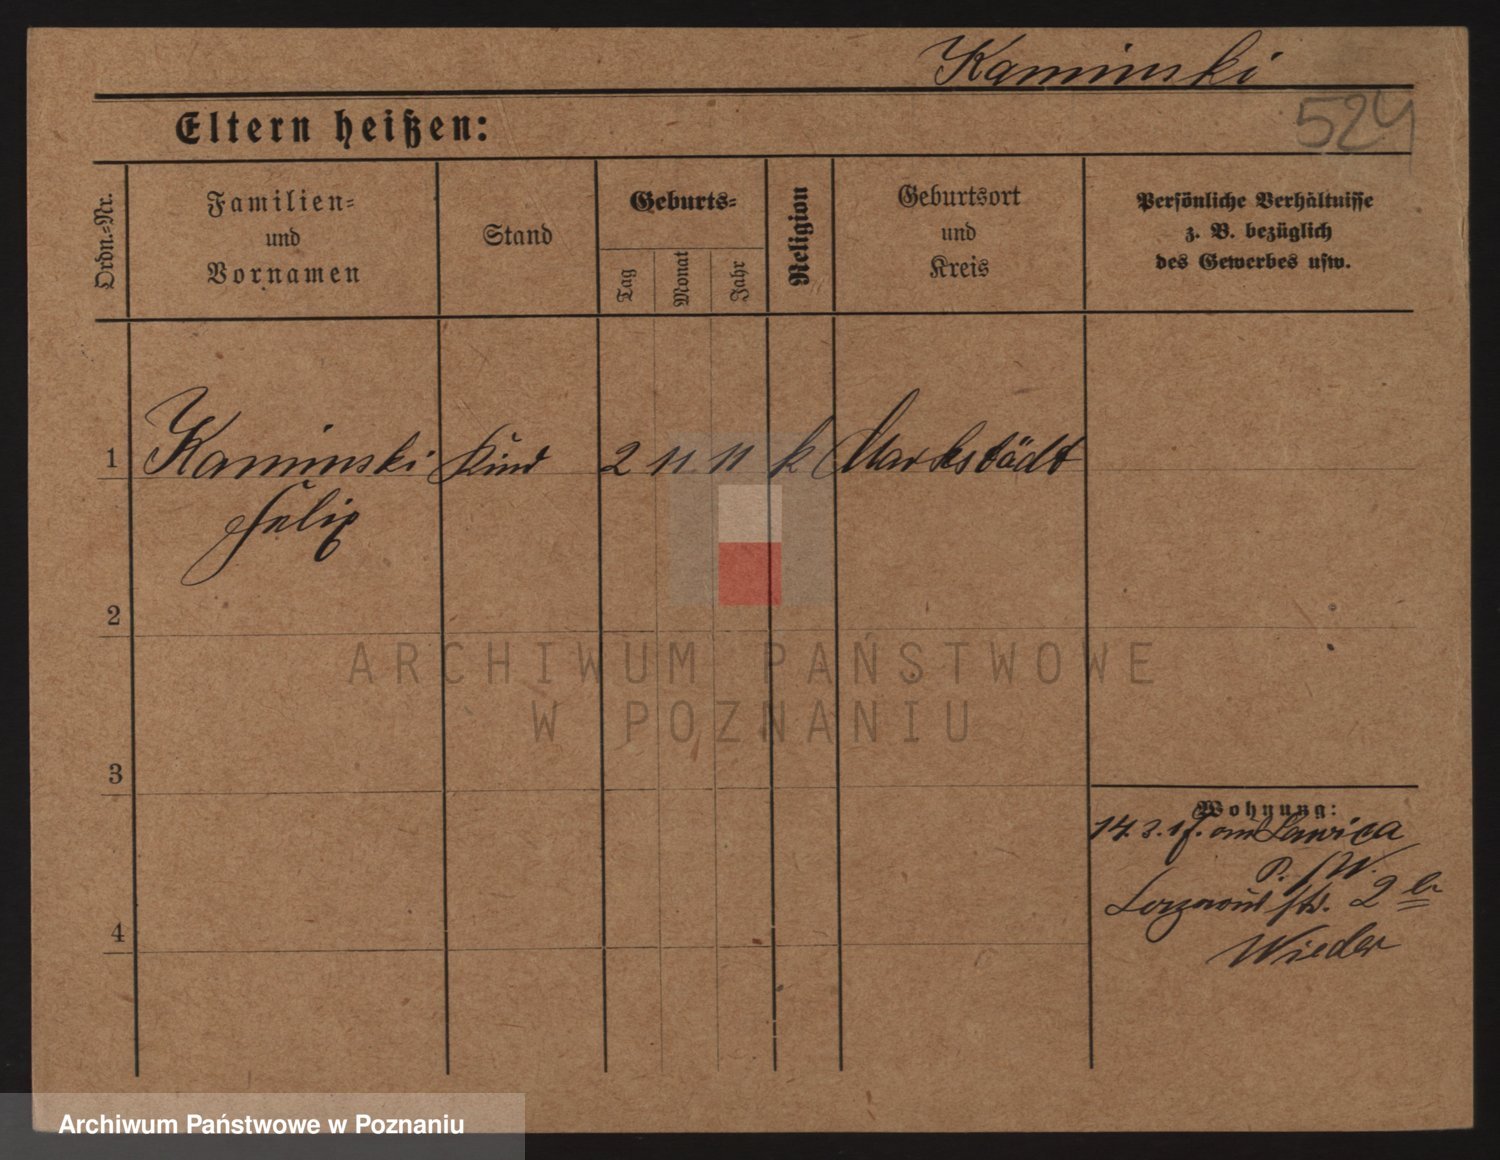 Kaminski
524
Eltern heißen:
Ordn.-Nr.
Familien-
und
Vornamen
Stand
Geburts-
Tag
Monat
Jahr
Religion
Geburtsort
und
Kreis
Persönliche Verhältnisse
z. B. bezüglich
des Gewerbes usw.
1 Kaminski Kind 2 11. 11 k Markstädt
Felix
2
ARCHIWUM PAŃSTWOWE
W POZNANIU
3
Wohnung:
14. 3. 17. aus Lawica
P. /W.
str. 2
Wieder
4
Archiwum Państwowe w Poznaniu